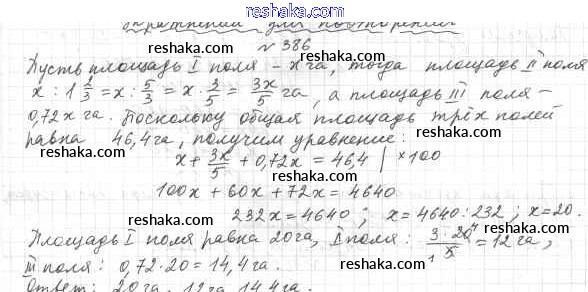 www.reshaka.com
Упражнения для повторения
№ 386
Пусть площадь I поля - x га, тогда площадь II поля
x : 1 2/3 = x : 5/3 = x · 3/5 = 3x/5 га, а площадь III поля -
0,72x га. Поскольку общая площадь трёх полей
равна 46,4 га, получим уравнение:
x + 3x/5 + 0,72x = 46,4 | ×100
100x + 60x + 72x = 4640
232x = 4640; x = 4640 : 232; x = 20.
Площадь I поля равна 20 га, II поля: 3 · 20 4 / 1 5 = 12 га,
III поля: 0,72 · 20 = 14,4 га.
Ответ: 20 га, 12 га, 14,4 га.
reshaka.com
reshaka.com
reshaka.com
reshaka.com
reshaka.com
reshaka.com
reshaka.com
reshaka.com
reshaka.com
reshaka.com
reshaka.com
reshaka.com